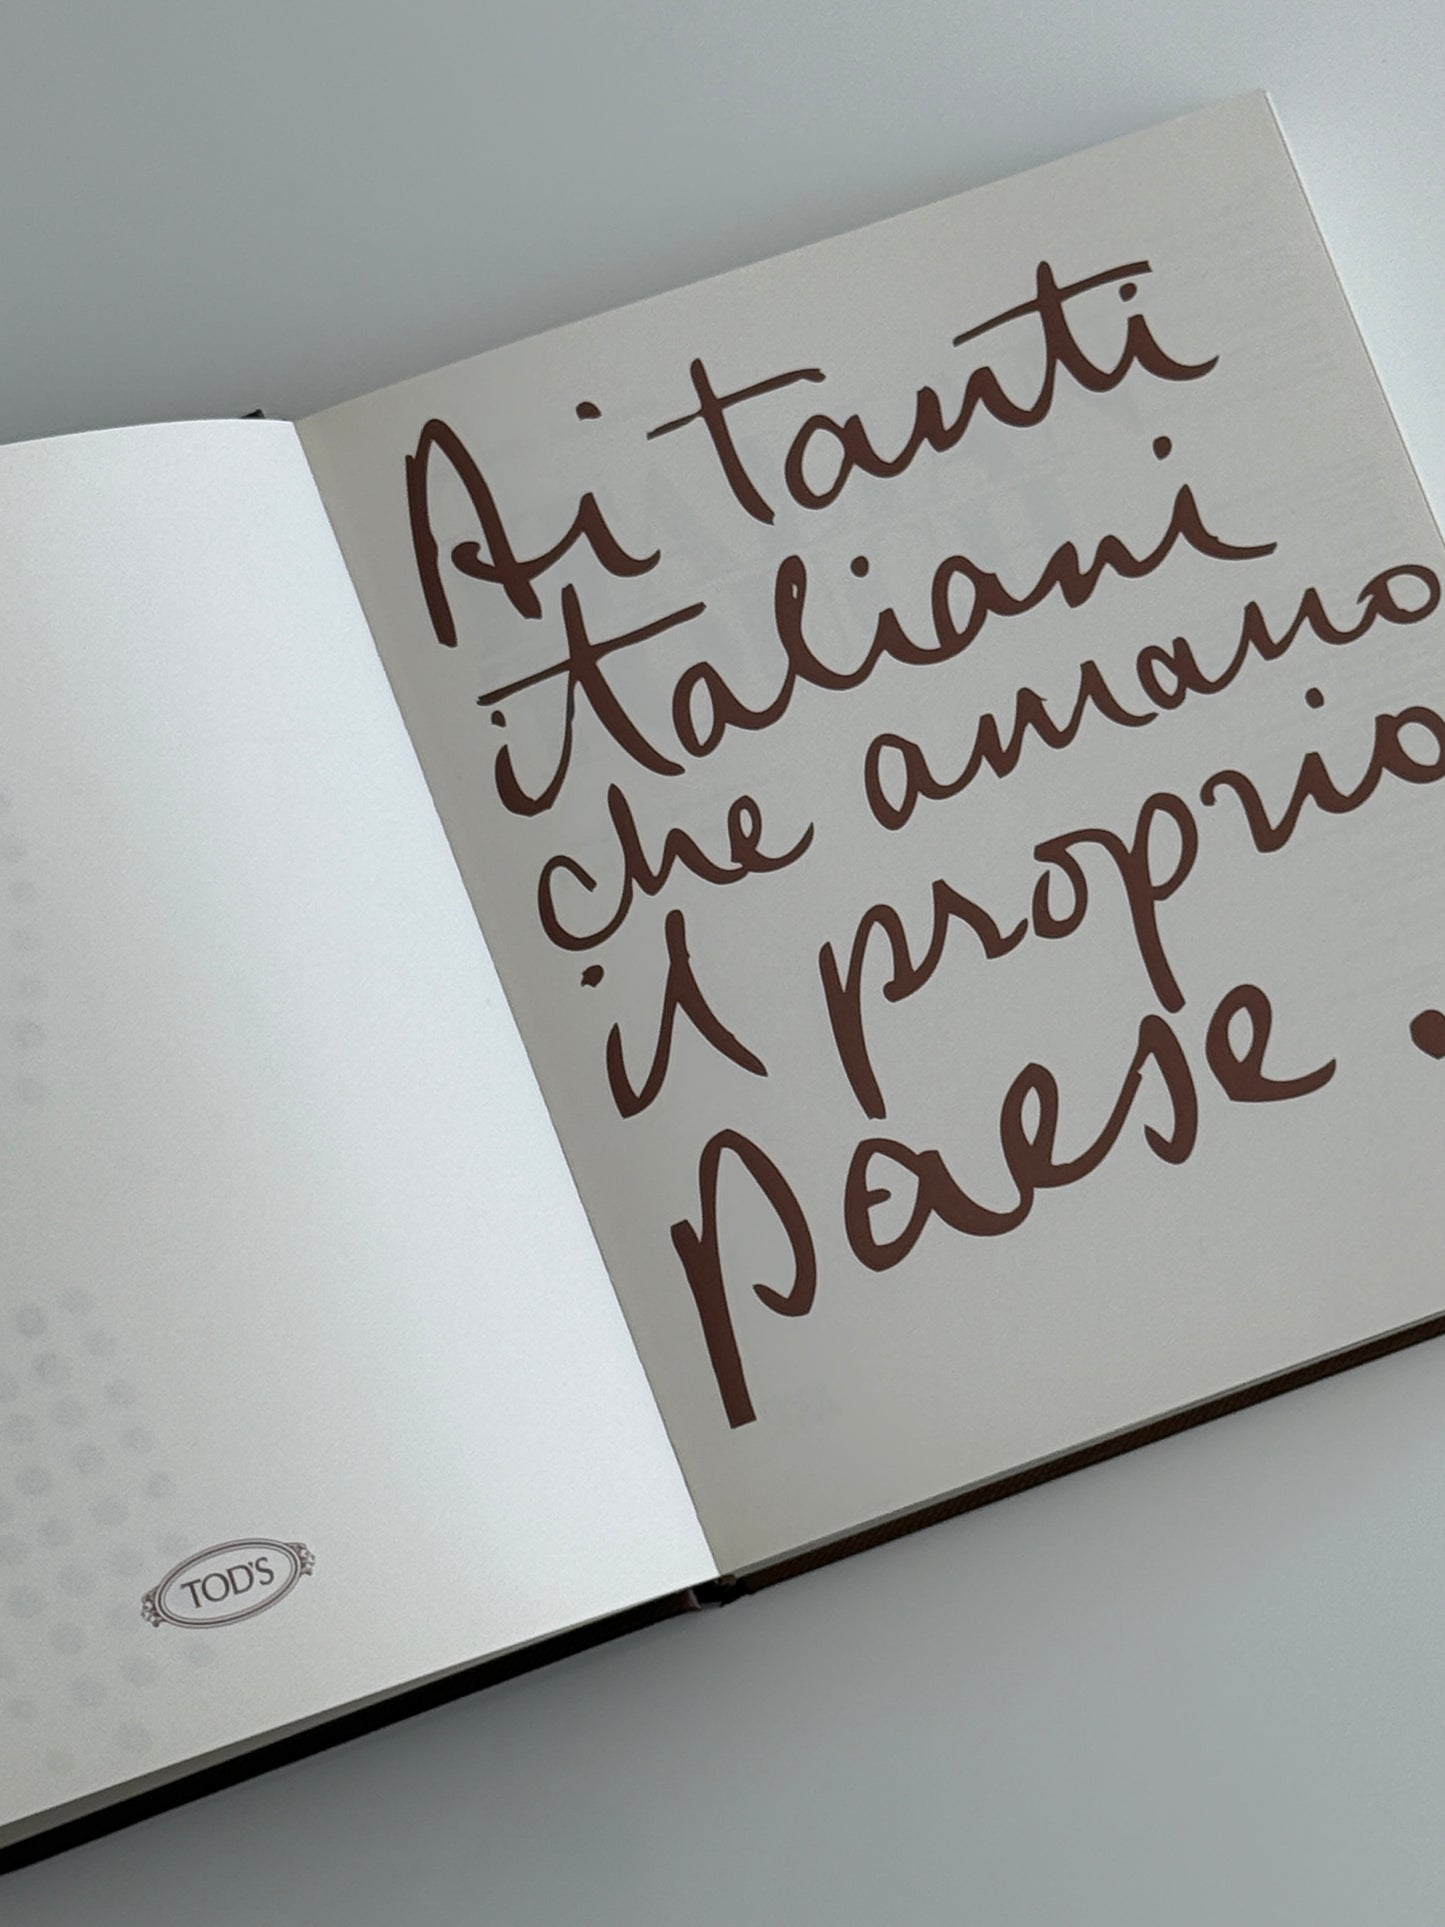 Ai tanti
italiani
che amano
il proprio
paese.
TOD'S